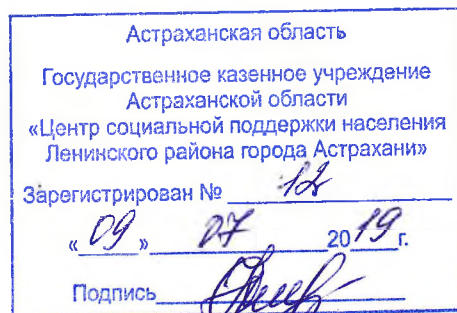 Астраханская область
Государственное казенное учреждение
Астраханской области
«Центр социальной поддержки населения
Ленинского района города Астрахани»
Зарегистрирован № 12
«09» 07 2019г.
Подпись